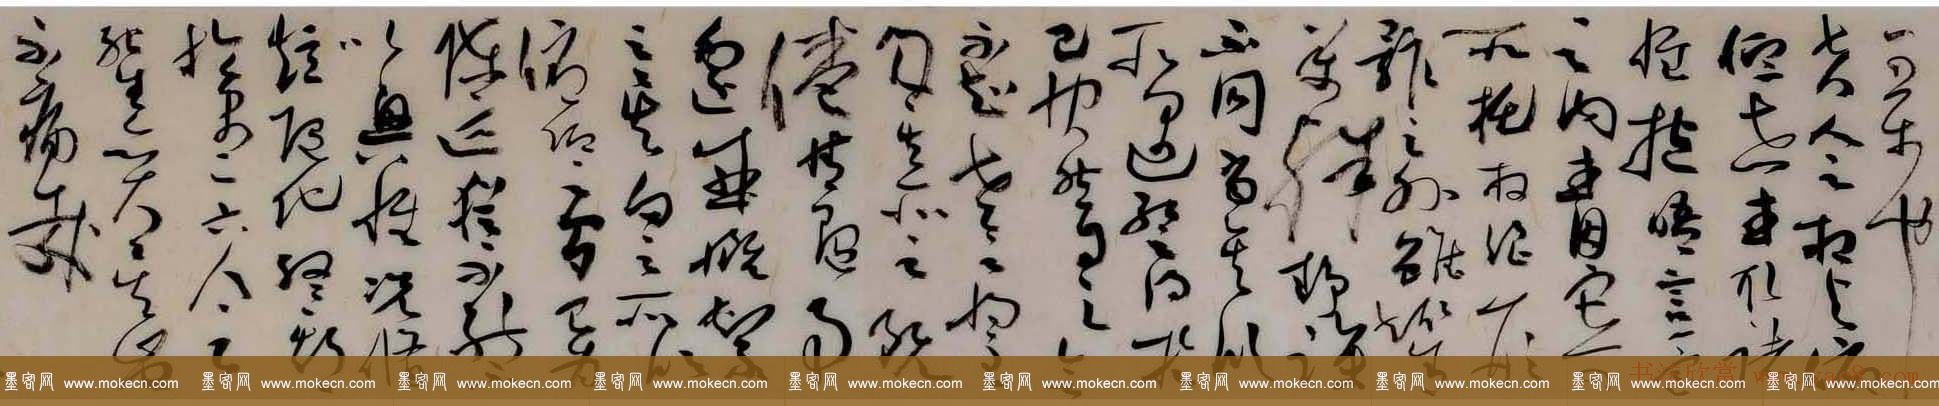 可樂也
夫人之相與俯
仰一世或取諸
懷抱悟言一
之內或因寄
所托放浪形
骸之外雖趣舍
萬殊靜躁
不同當其欣
所遇暫得於
己快然自足
不知老之將
及其所之既
倦情隨事
遷感慨係
之矣向之所欣
俛仰之間已為
陳迹猶不能不
以之興懷況脩
短隨化終期
於盡古人云
死生亦大矣豈
不痛哉
墨客网 www.mokecn.com 墨客网 www.mokecn.com 墨客网 www.mokecn.com 墨客网 www.mokecn.com 墨客网 www.mokecn.com 墨客网 www.mokecn.com 墨客网 www.mokecn.com 墨客网 www.mokecn.com 墨客网 www.mokecn.com 墨客网 www.mokecn.com
书法欣赏